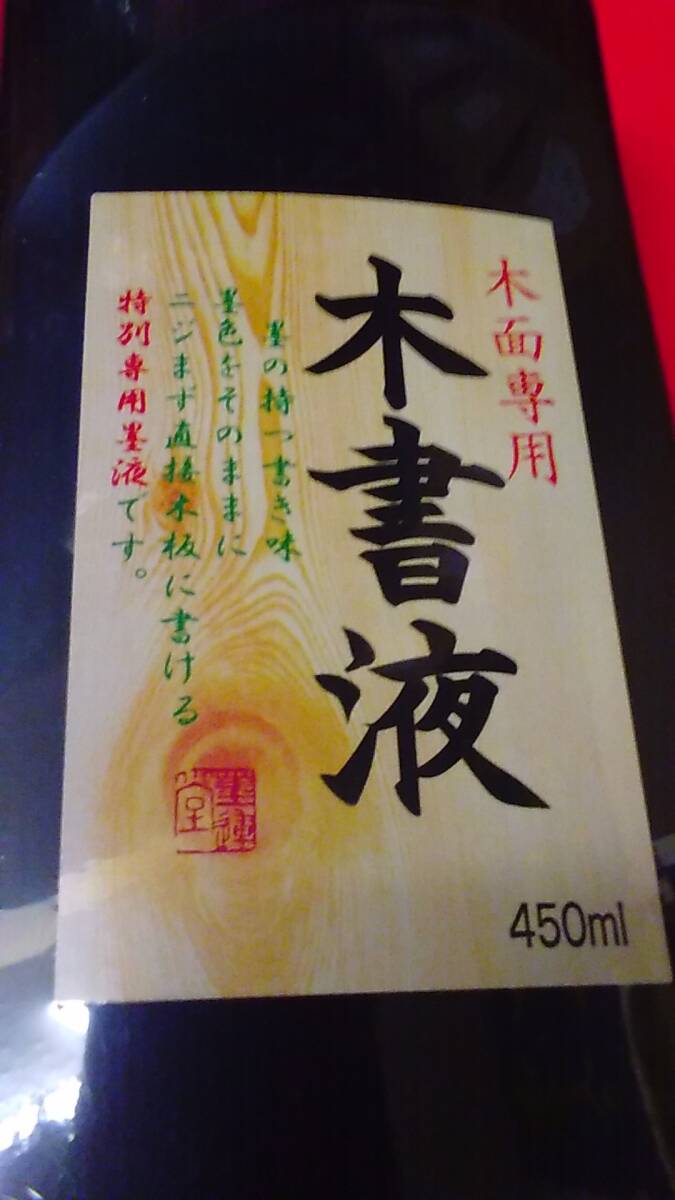 木面専用
木書液
墨の持つ書き味
墨色をそのままに
ニジまず直接木板に書ける
特別専用墨液です。
450ml